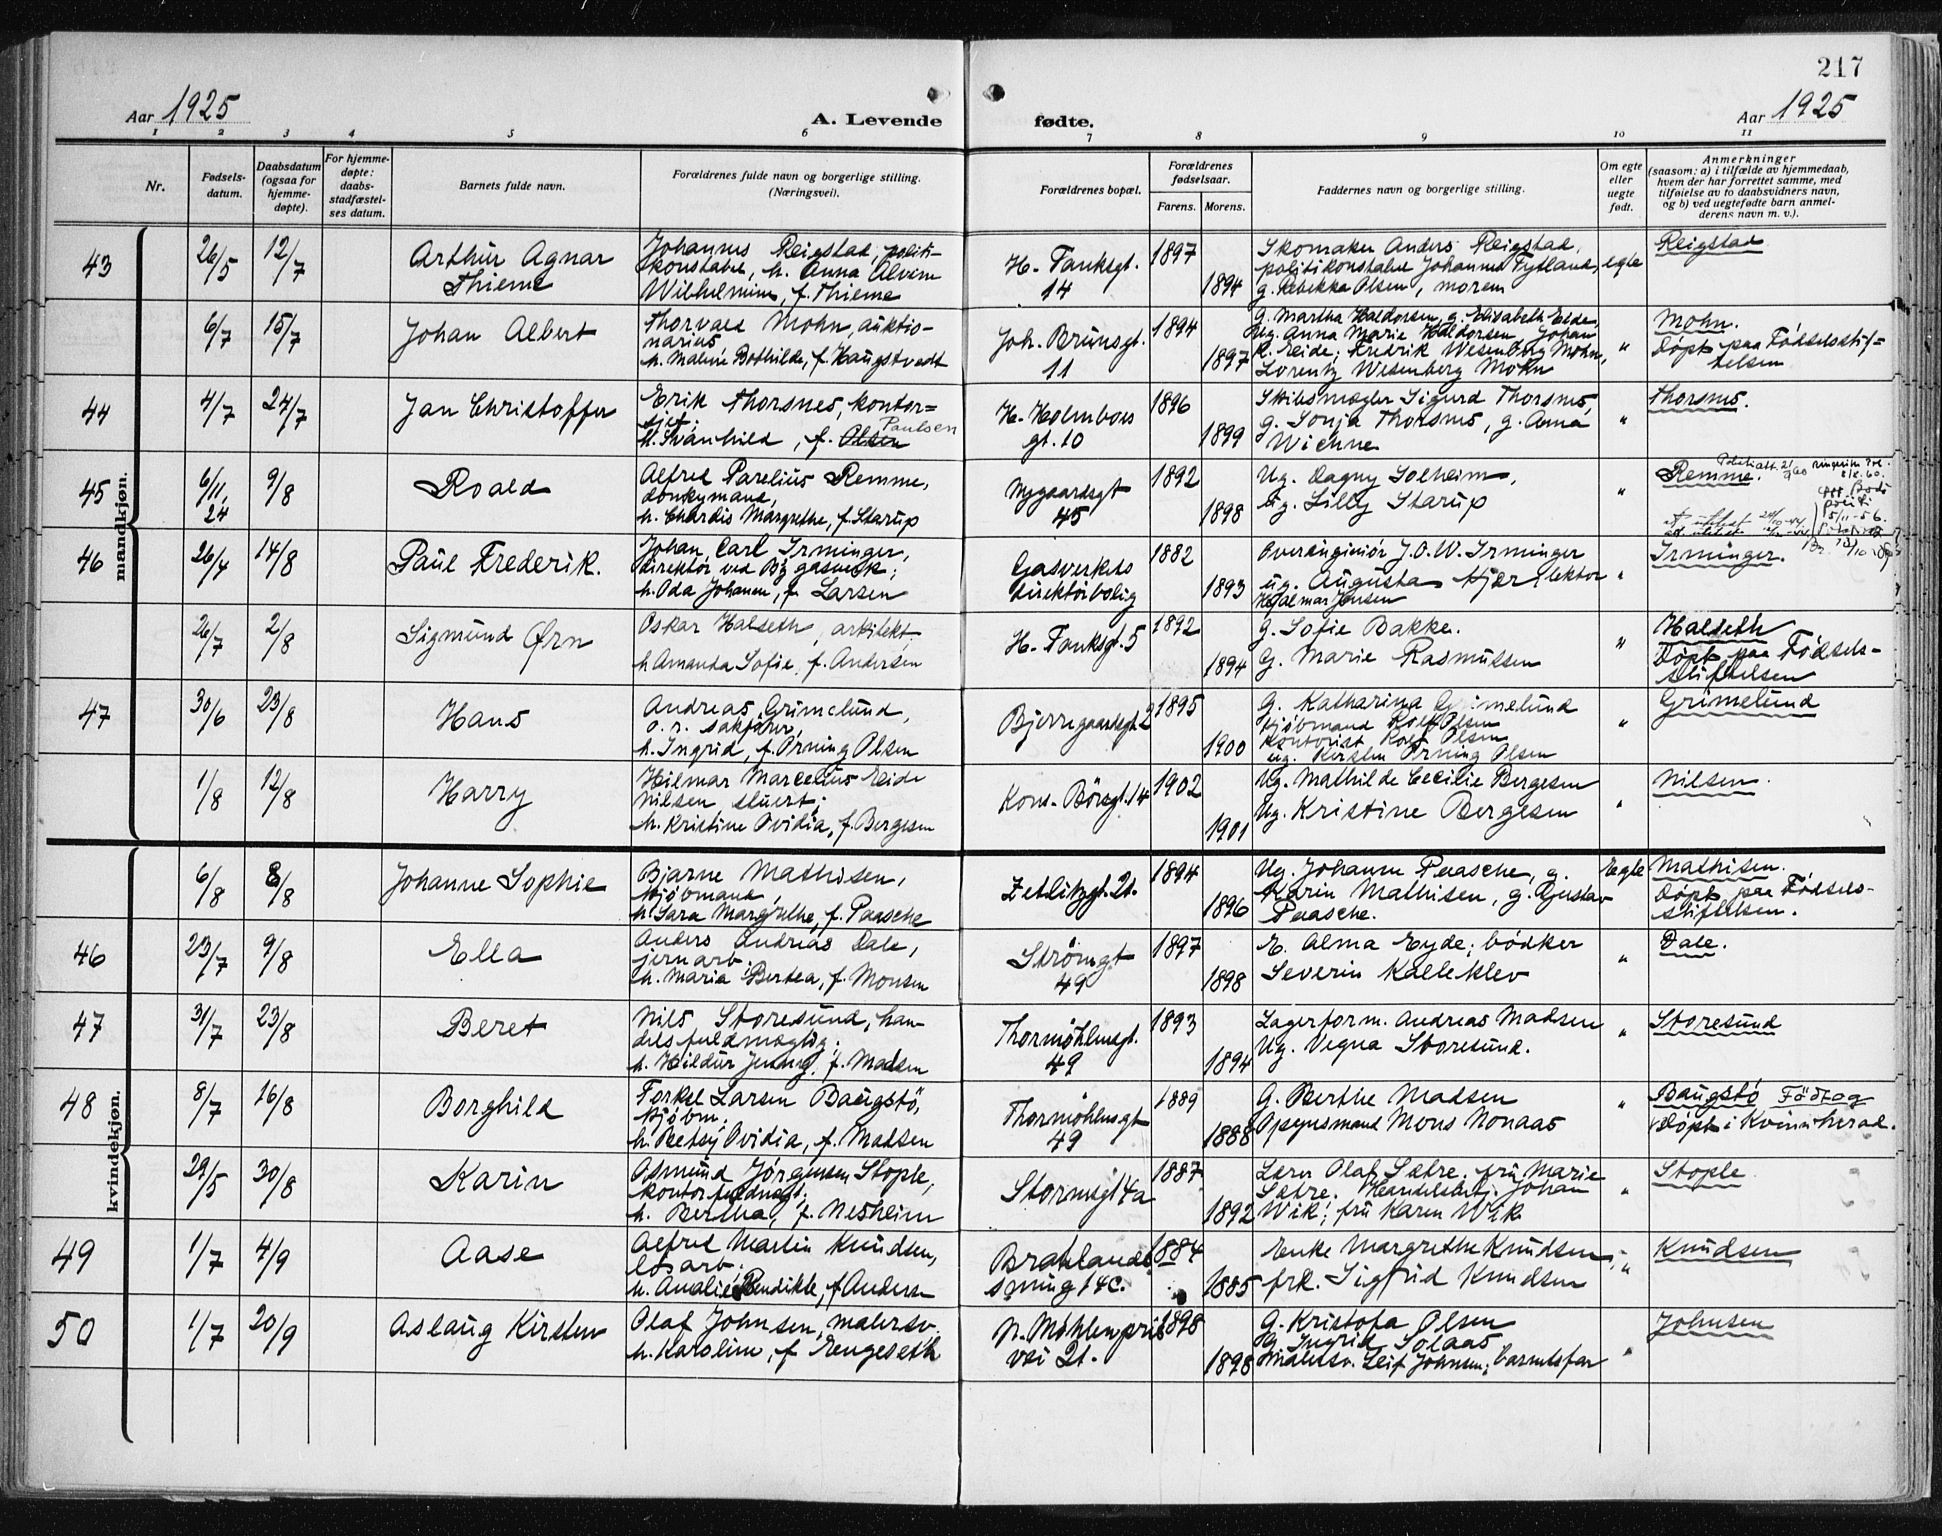 217
Aar 1925
A. Levende fødte.
Aar 1925
1 2 3 4 5 6 7 8 9 10 11
Nr.
Fødsels-
datum.
Daabsdatum
(ogsaa for
hjemme-
døpte).
For hjemme-
døpte:
daabs-
stadfæstel-
ses datum.
Barnets fulde navn.
Forældrenes fulde navn og borgerlige stilling.
(Næringsvei).
Forældrenes bopæl.
Forældrenes
fødselsaar.
Farens. Morens.
Faddernes navn og borgerlige stilling.
Om egte
eller
uegte
født.
Anmerkninger
(saasom: a) i tilfælde av hjemmedaab,
hvem der har forrettet samme, med
tilføielse av to daabsvidners navn,
og b) ved uegtefødte barn anmel-
derens navn m. v.).
mandkjøn.
43
26/5
12/7
Arthur Agnar
Thieme
Johannes Reigstad, politi-
konstabel, h. Anna Alvine
Wilhelmine, f. Thieme
H. Tanksgt.
14
1897
1894
Skomaker Anders Reigstad,
politikonstabel Johannes Tytland,
g. Rebekka Olsen, moren
egte
Reigstad
6/7
15/7
Johan Albert
Thorvald Mohn, auktio-
narius
h. Malene Bothilde, f. Haugstvedt
Joh. Brunsgt.
11
1894
1897
g. Martha Haldorsen, g. Elisabeth Eide,
ug. Anna Marie Haldorsen, Johan
K. Eide; Fredrik Wesenberg Mohn,
Lorentz Wesenberg Mohn
"
Mohn.
Døpt paa Fødselsstif-
telsen
44
4/7
24/7
Jan Christoffer
Erik Thorsnes, kontor-
sjef;
h. Svanhild, f. Olsen Paulsen
H. Holmboes
gt. 10
1896
1899
Skibsmægler Sigurd Thorsnes,
g. Sonja Thorsnes, g. Anna
Wichne
"
Thorsnes.
45
6/11,
24
9/8
Roald
Alfred Parelius Remme,
donkymand,
h. Chardis Margrethe, f. Starup
Nygaardsgt
45
1892
1898
Ug. Dagny Solheim,
Ug. Lilly Starup
"
Remme.
46
26/4
14/8
Paul Frederik.
Johan Carl Irminger,
direktør ved Bg gasverk;
h. Oda Johanne, f. Larsen
Gasverkets
direktørbolig
1882
1893
Overingeniør J.O.W. Irminger
ug. Augusta Kjær, lektor
Hjalmar Jensen
"
Irminger.
26/7
2/8
Sigmund Ørn
Oskar Halseth, arkitekt
h Amanda Sofie, f. Andersen
H. Tanksgt. 5
1892
1894
g. Sofie Bakke.
G. Marie Rasmussen
"
Halseth
Døpt paa Fødsels-
stiftelsen
47
30/6
23/8
Hans
Andreas Grimelund,
o. r. sakfører,
h. Ingrid, f. Orning Olsen
Bjerregaardsgt 2
1895
1900
G. Katharina Grimelund
sjøvmand Rolf Olsen
kontorist Rolf Olsen
ug. Kirsten Orning Olsen
"
Grimelund
1/8
12/8
Harry
Hilmar Marcelius Eide
Nilsen, stuert;
h. Kristine Ovidia, f. Bergesen
Kons. Børsgt. 14
1902
1901
Ug. Mathilde Cecilie Bergesen
Ug. Kristine Bergesen
"
Nilsen
kvindekjøn.
6/8
8/8
Johanne Sophie
Bjarne Mathisen,
sjøvmand,
h. Sara Margrethe, f. Paasche
Zetlitzgt. 21.
1894
1896
Ug. Johanne Paasche, g.
Karin Mathisen, g. Gustav
Paasche.
Egte
Mathisen.
Døpt paa Fødsels-
stiftelsen.
46
23/7
9/8
Ella
Anders Andreas Dale,
jernarb.
h. Maria Bertea, f. Monsen
Strømgt
49
1897
1898
E. Alma Eyde; bødker
Severin Kalleklev
"
Dale.
47
31/7
23/8
Beret
Nils Storesund, han-
delsfuldmægtig;
h. Hildur Jenny, f. Madsen
Thormøhlensgt.
49
1893
1894
Lagerform. Andreas Madsen
Ug. Vigna Storesund.
"
Storesund
48
8/7
16/8
Borghild
Torkel Larsen Baugstø,
sjøvm.
h. Betsy Ovidia, f. Madsen
Thormøhlensgt
49
1889
1888
G. Berthe Madsen
Opsynsmand Mons Monaas
"
Baugstø Født og
døpt i Kvinnherad.
29/5
30/8
Karin
Asmund Jørgensen Stople,
kontorfuldmægt.
h. Bertha, f. Nesheim
Stormsgt 4a
1887
1892
Lærer Olaf Sætre, fru Marie
Sætre. Handelsbetj. Johan
Wik; fru Karen Wik
"
Stople
49
1/7
4/9
Aase
Alfred Martin Knudsen,
løsarb.
h. Amalie Bendikte, f. Andersen
1884
1885
Enke Margrethe Knudsen;
frk. Sigfrid Knudsen
"
Knudsen
50
1/7
20/9
Aslaug Kirsten
Olaf Johnsen, malersv.
h. Karoline, f. Engeseth
N. Møhlenpris
vei 21.
1898
1898
G. Kristofa Olsen
G. Ingrid Solaas
Malersv. Leif Johnsen; barnetsfar
"
Johnsen